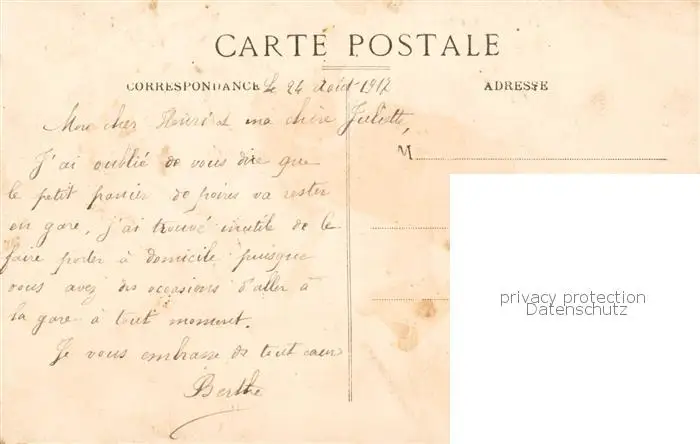 CARTE POSTALE
CORRESPONDANCE Le 24 Août 1912
ADRESSE
Mon cher Henri et ma chère Juliette,
M
J'ai oublié de vous dire que
le petit panier de poires va rester
en gare, j'ai trouvé inutile de le
faire porter à domicile puisque
vous avez des occasions d'aller à
la gare à tout moment.
Je vous embrasse de tout cœur
Berthe
privacy protection
Datenschutz